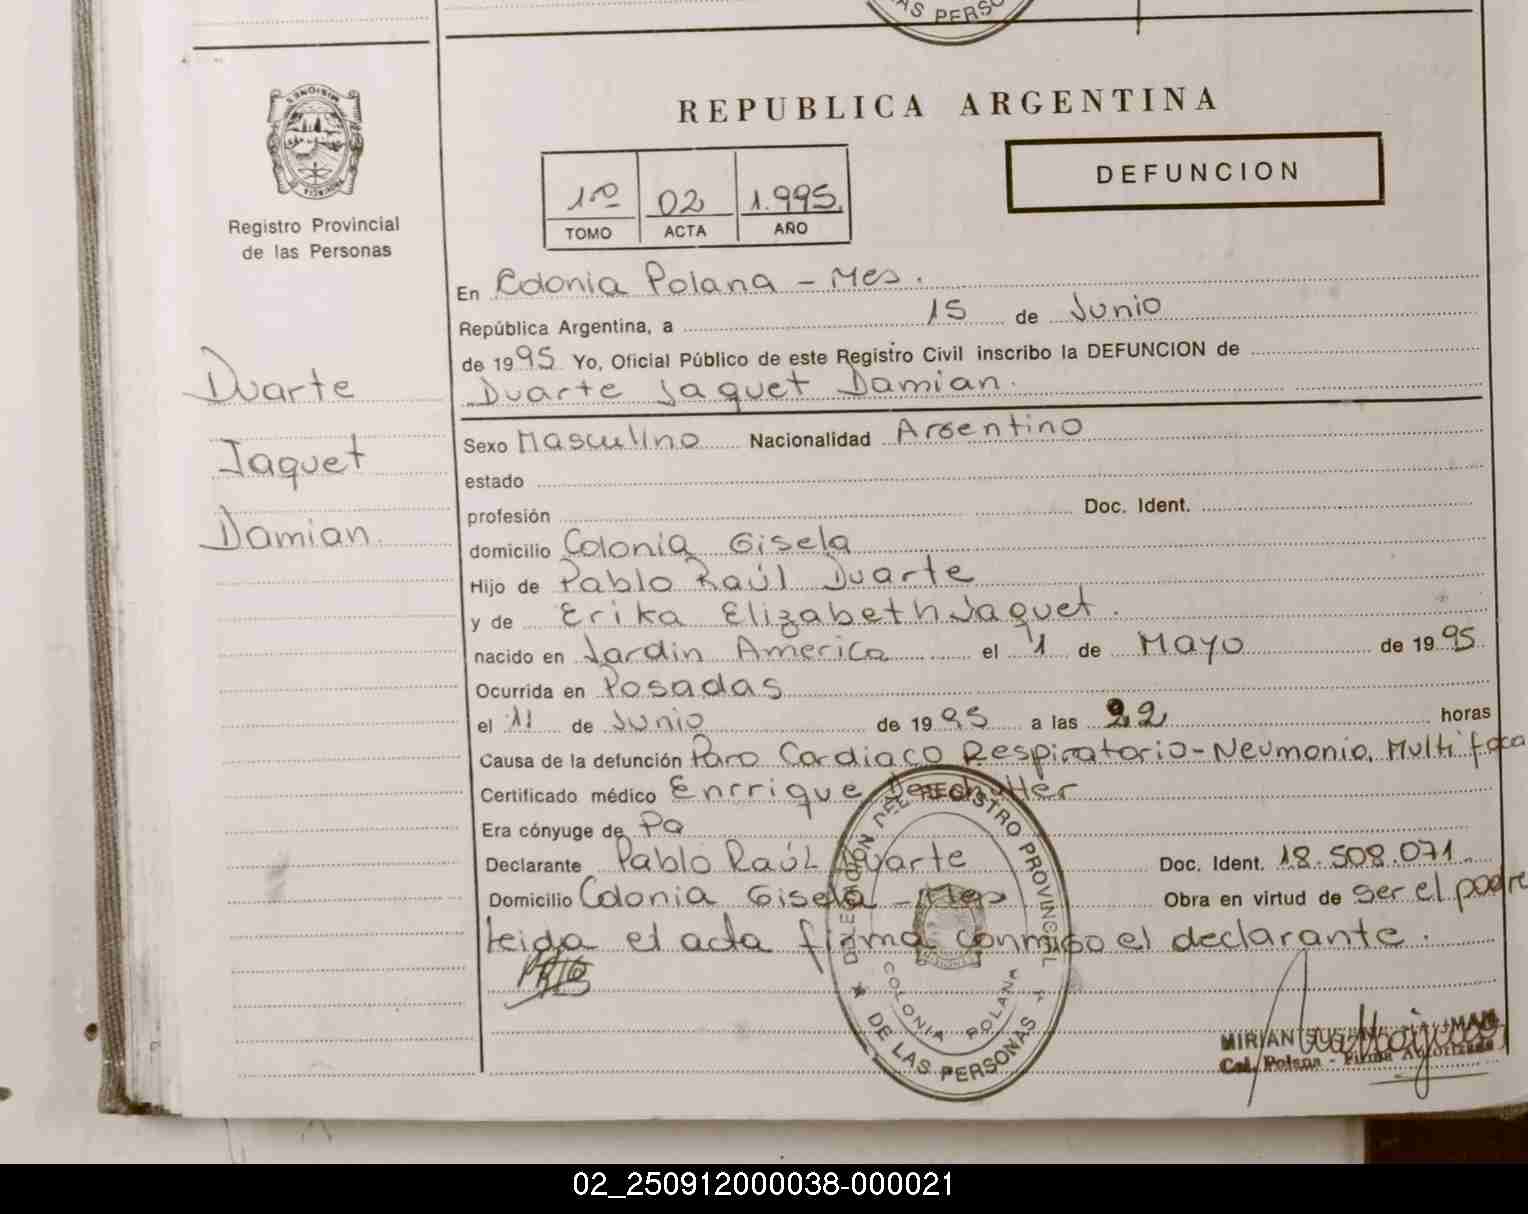 AS PERSO
REPUBLICA ARGENTINA
DEFUNCION
1ro 02 1.995.
TOMO ACTA AÑO
MISIONES
PROVINCIA
Registro Provincial
de las Personas
Duarte
Jaquet
Damian.
En Colonia Polana - Mes.
República Argentina, a 15 de Junio
de 1995 Yo, Oficial Público de este Registro Civil inscribo la DEFUNCION de
Duarte Jaquet Damian.
Sexo Masculino Nacionalidad Argentino
estado
profesión Doc. Ident.
domicilio Colonia Gisela
Hijo de Pablo Raúl Duarte
y de Erika Elizabeth Jaquet.
nacido en Jardin America el 1 de Mayo de 1995
Ocurrida en Posadas
el 11 de Junio de 1995 a las 22 horas
Causa de la defunción Paro Cardiaco Respiratorio-Neumonia, Multifoca
Certificado médico Enrrique
Era cónyuge de Pa
Declarante Pablo Raúl Duarte Doc. Ident. 18.508.071
Domicilio Colonia Gisela - Mes Obra en virtud de Ser el padre
leida el acta firma conmigo el declarante.
DEL REGISTRO PROVINCIAL
DE LAS PERSONAS
COLONIA POLANA
MIRIAN
Col. Polana - Firma Autorizada
02_250912000038-000021